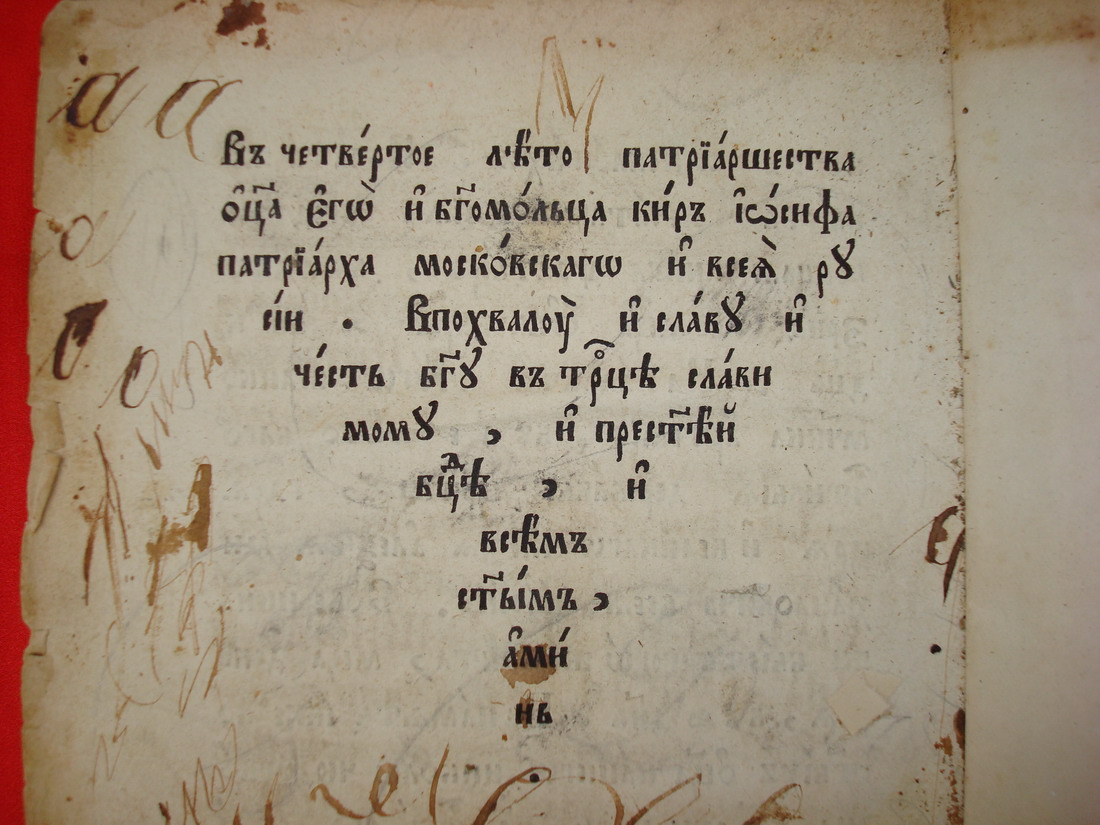 Въ четве́ртое лѣ́то патрїа́ршества
ѻ҆ц҃а є҆гѡ̀ и҆ бг҃омо́льца ки́ръ і҆ѡ́сифа
патрїа́рха моско́вскагѡ и҆ всеѧ̀ рꙋ
сі́и . Впохвалоу̀ и҆ сла́вꙋ и҆
че́сть бг҃ꙋ въ трⷪ҇цѣ сла́ви
момꙋ , и҆ прест҃ѣй
бцⷣѣ , и҆
всѣ́мъ
ст҃ы́мъ ,
а҆ми́
нь
.
а а